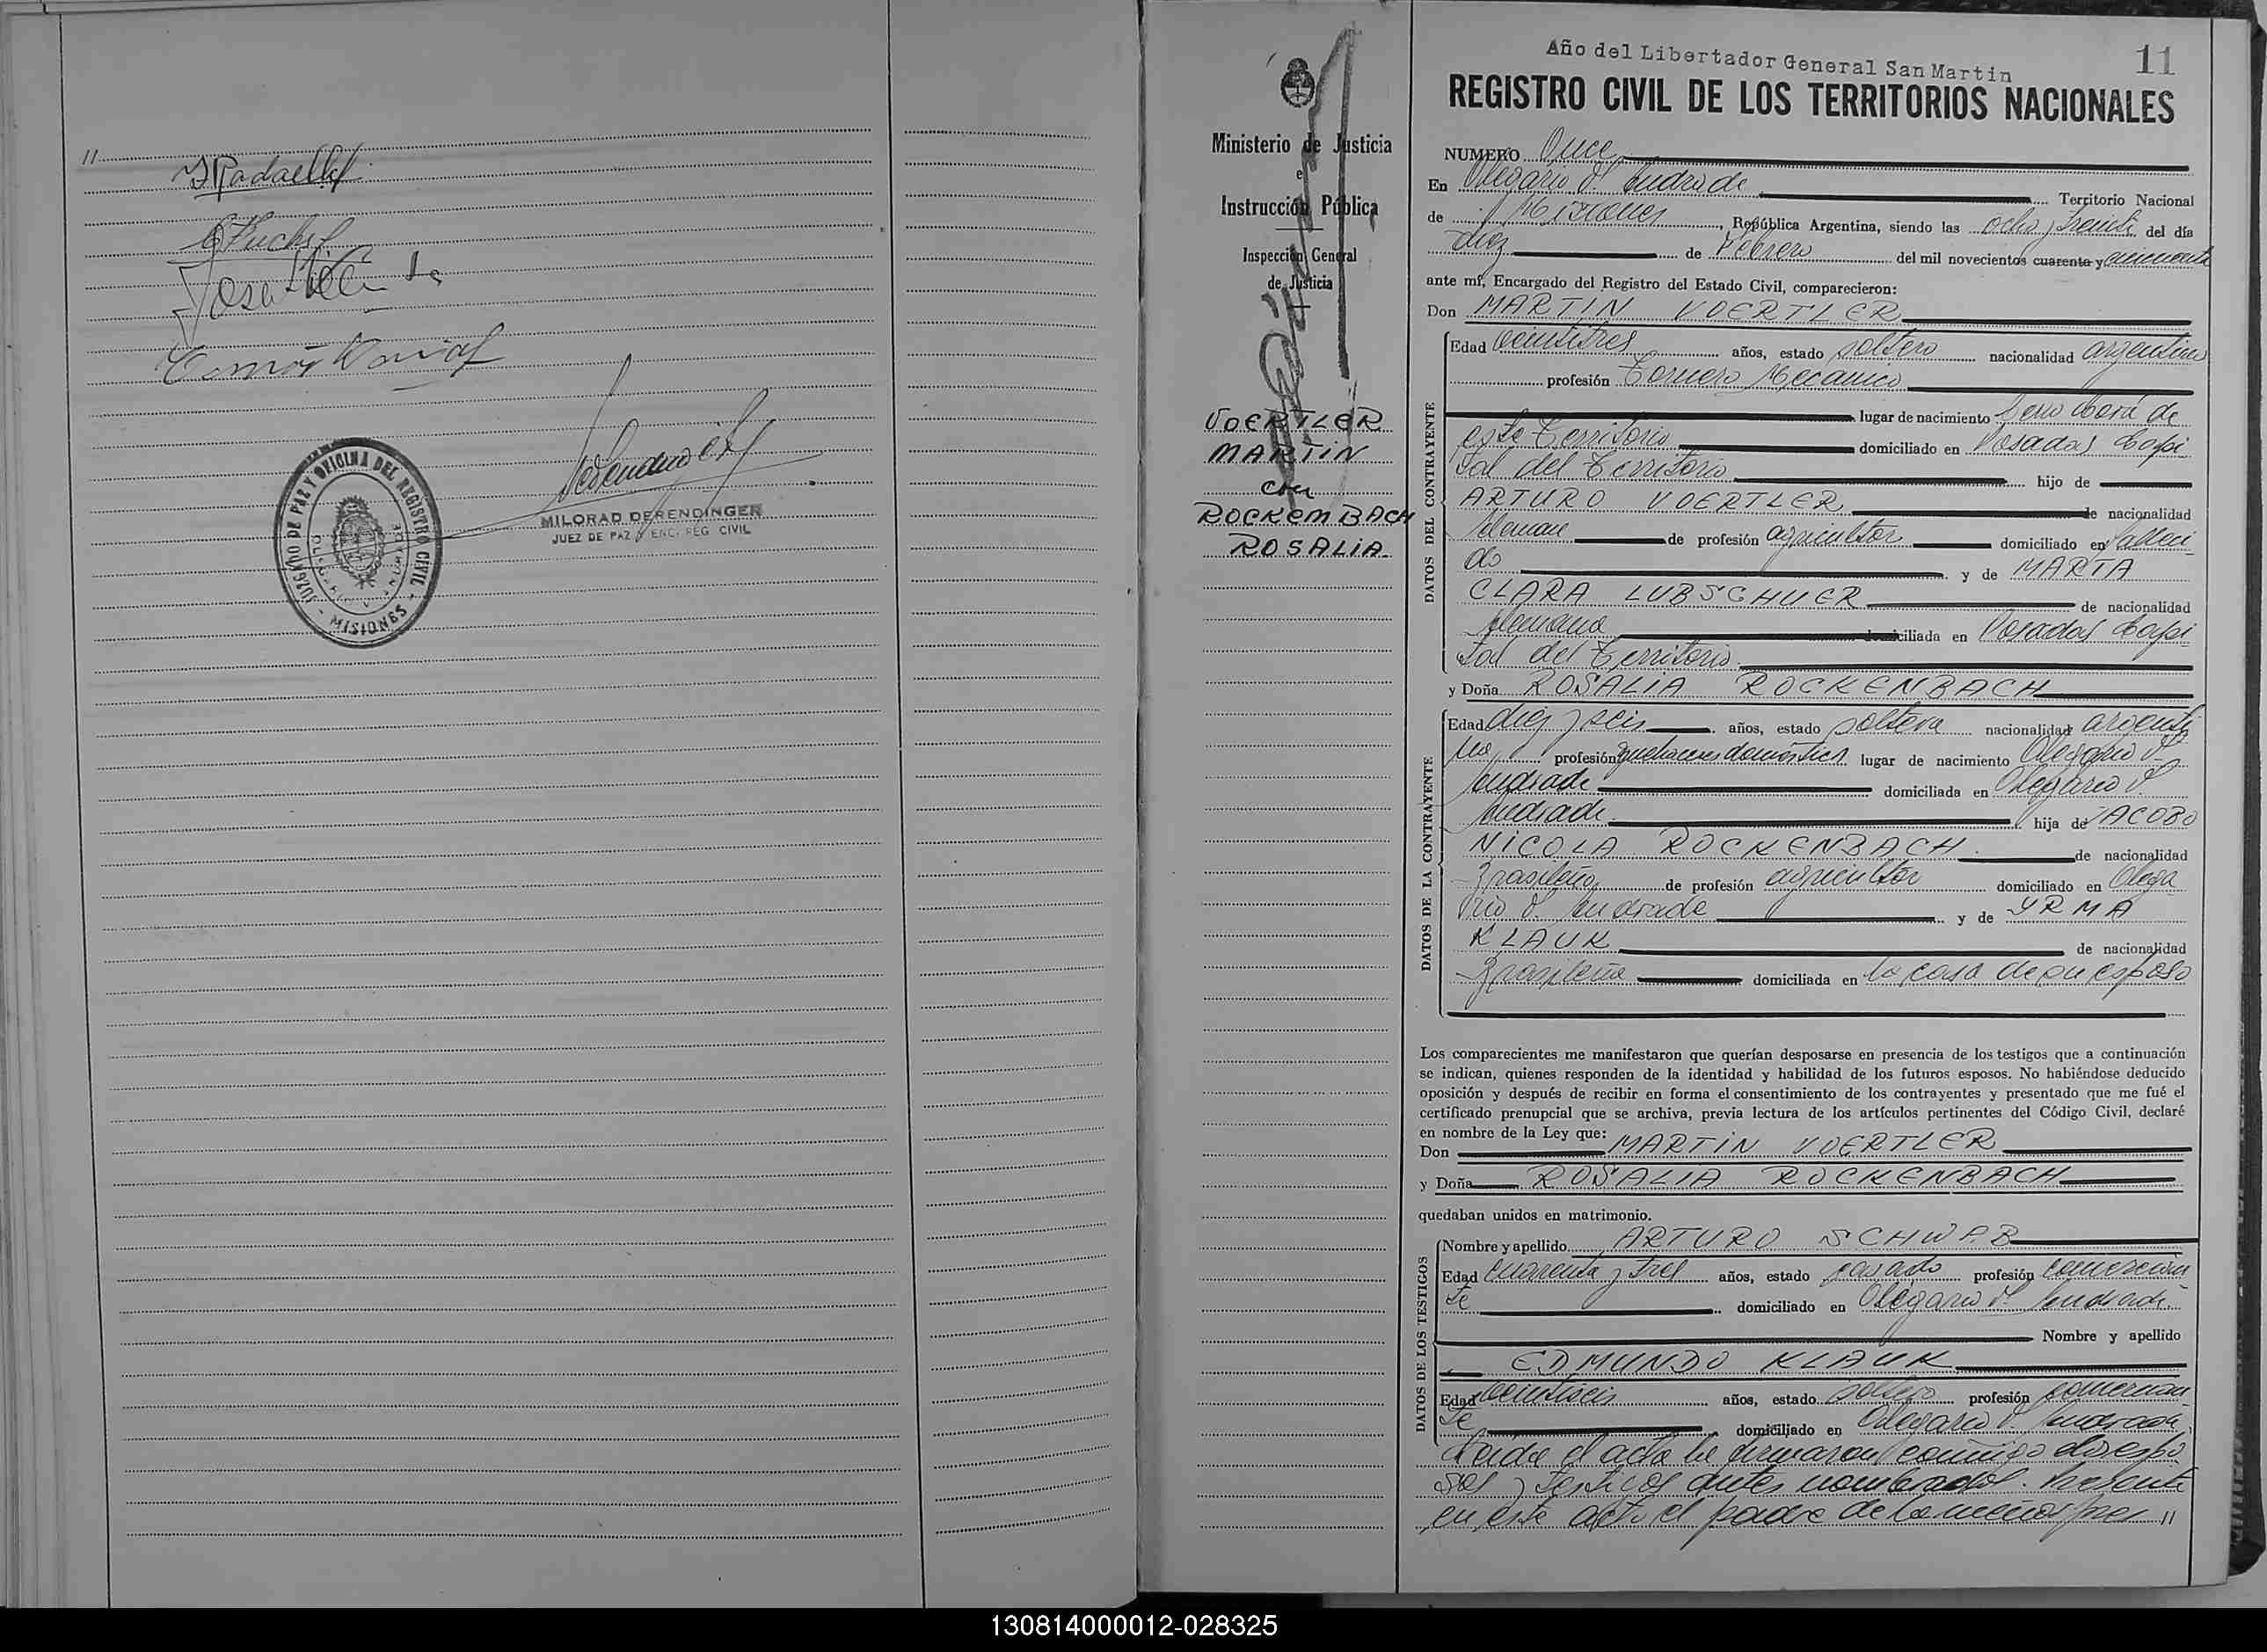 11
JRadaelli
José
Tomás
JUZGADO DE PAZ Y OFICINA DEL REGISTRO CIVIL
- MISIONES -
MILORAD DERENDINGER
JUEZ DE PAZ Y ENC. REG CIVIL
Ministerio de Justicia
e
Instrucción Pública
Inspección General
de Justicia
VOERTLER
MARTIN
con
ROCKEMBACH
ROSALIA
Año del Libertador General San Martin
11
REGISTRO CIVIL DE LOS TERRITORIOS NACIONALES
NUMERO Once
En Olegario V. Andrade Territorio Nacional
de Misiones, República Argentina, siendo las ocho y treinta del día
diez de Febrero del mil novecientos cuarenta y cincuenta
ante mí, Encargado del Registro del Estado Civil, comparecieron:
Don MARTIN VOERTLER
DATOS DEL CONTRAYENTE
Edad veintitres años, estado soltero nacionalidad argentino
profesión Tornero Mecanico
lugar de nacimiento Corá de
este Territorio domiciliado en Posadas Capi
tal del Territorio hijo de
ARTURO VOERTLER de nacionalidad
Aleman de profesión agricultor domiciliado en falleci
do y de MARTA
CLARA LUBSCHUER de nacionalidad
Alemana domiciliada en Posadas Capi
tal del Territorio.
y Doña ROSALIA ROCKENBACH
DATOS DE LA CONTRAYENTE
Edad diez y seis años, estado soltera nacionalidad argenti
na profesión quehaceres domésticos lugar de nacimiento Olegario V.
Andrade domiciliada en Olegario V.
Andrade. hija de JACOBO
NICOLA ROCKENBACH. de nacionalidad
Brasileño de profesión agricultor domiciliado en Olega
rio V. Andrade y de YRMA
KLAUK de nacionalidad
Brasileña domiciliada en la casa de su esposo
Los comparecientes me manifestaron que querían desposarse en presencia de los testigos que a continuación
se indican, quienes responden de la identidad y habilidad de los futuros esposos. No habiéndose deducido
oposición y después de recibir en forma el consentimiento de los contrayentes y presentado que me fué el
certificado prenupcial que se archiva, previa lectura de los artículos pertinentes del Código Civil, declaré
en nombre de la Ley que:
Don MARTIN VOERTLER
y Doña ROSALIA ROCKENBACH
quedaban unidos en matrimonio.
DATOS DE LOS TESTIGOS
Nombre y apellido ARTURO SCHWAB
Edad cuarenta y tres años, estado casado profesión comercian
te domiciliado en Olegario V. Andrade.
Nombre y apellido
EDMUNDO KLAUK
Edad veintiseis años, estado soltero profesión comercian
te domiciliado en Olegario V. Andrade
Leida el acta la firmaron conmigo los espo
sos y testigos antes nombrados. Presente
en este acto el padre de la menor 11
130814000012-028325